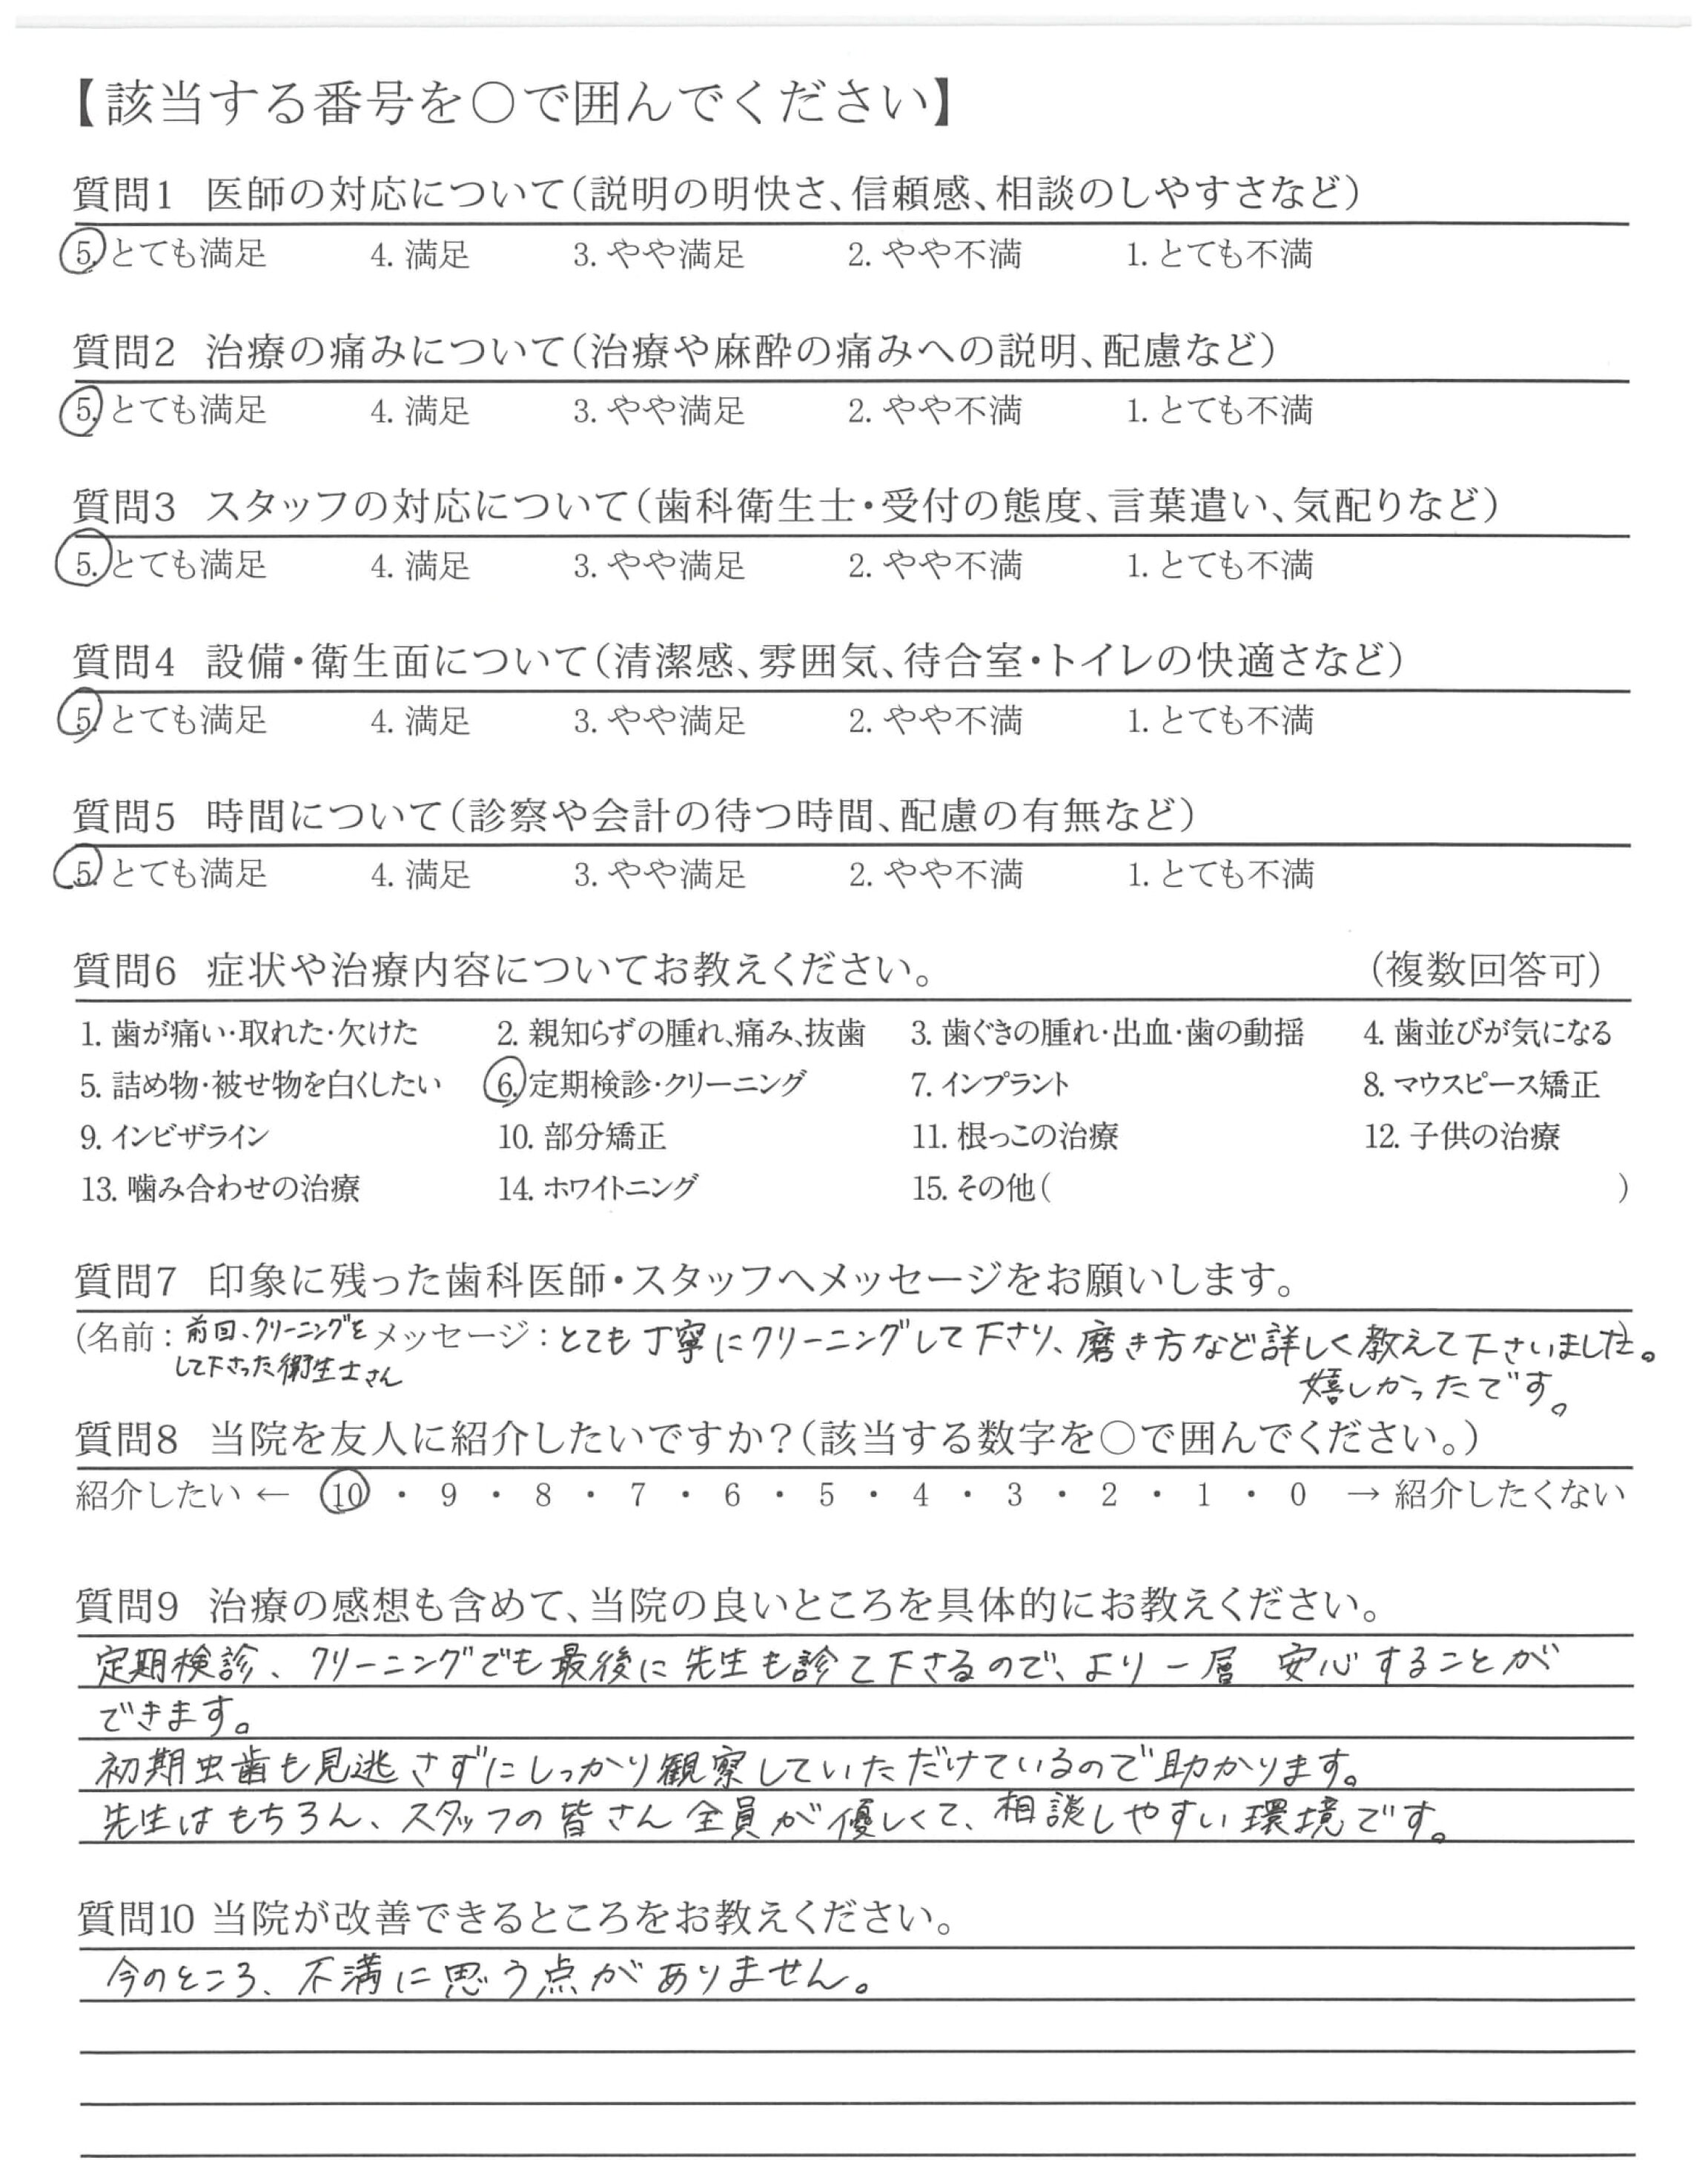 【該当する番号を○で囲んでください】
質問1 医師の対応について(説明の明快さ、信頼感、相談のしやすさなど)
5. とても満足 4. 満足 3. やや満足 2. やや不満 1. とても不満
質問2 治療の痛みについて(治療や麻酔の痛みへの説明、配慮など)
5. とても満足 4. 満足 3. やや満足 2. やや不満 1. とても不満
質問3 スタッフの対応について(歯科衛生士・受付の態度、言葉遣い、気配りなど)
5. とても満足 4. 満足 3. やや満足 2. やや不満 1. とても不満
質問4 設備・衛生面について(清潔感、雰囲気、待合室・トイレの快適さなど)
5. とても満足 4. 満足 3. やや満足 2. やや不満 1. とても不満
質問5 時間について(診察や会計の待つ時間、配慮の有無など)
5. とても満足 4. 満足 3. やや満足 2. やや不満 1. とても不満
質問6 症状や治療内容についてお教えください。 (複数回答可)
1. 歯が痛い・取れた・欠けた 2. 親知らずの腫れ、痛み、抜歯 3. 歯ぐきの腫れ・出血・歯の動揺 4. 歯並びが気になる
5. 詰め物・被せ物を白くしたい 6. 定期検診・クリーニング 7. インプラント 8. マウスピース矯正
9. インビザライン 10. 部分矯正 11. 根っこの治療 12. 子供の治療
13. 噛み合わせの治療 14. ホワイトニング 15. その他( )
質問7 印象に残った歯科医師・スタッフへメッセージをお願いします。
(名前:前回、クリーニングを メッセージ:とても丁寧にクリーニングして下さり、磨き方など詳しく教えて下さいました)。
して下さった衛生士さん 嬉しかったです。
質問8 当院を友人に紹介したいですか?(該当する数字を○で囲んでください。)
紹介したい ← 10 ・ 9 ・ 8 ・ 7 ・ 6 ・ 5 ・ 4 ・ 3 ・ 2 ・ 1 ・ 0 → 紹介したくない
質問9 治療の感想も含めて、当院の良いところを具体的にお教えください。
定期検診、クリーニングでも最後に先生も診て下さるので、より一層 安心することが
できます。
初期虫歯も見逃さずにしっかり観察していただけているので助かります。
先生はもちろん、スタッフの皆さん全員が優しくて、相談しやすい環境です。
質問10 当院が改善できるところをお教えください。
今のところ、不満に思う点がありません。